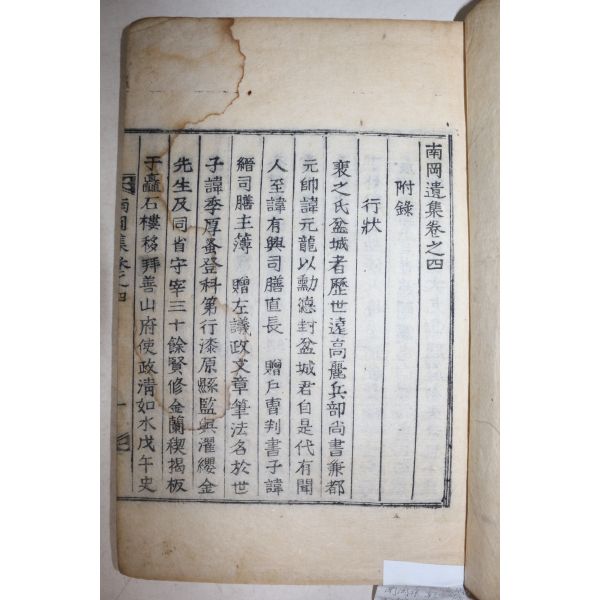 南岡遺集卷之四
附錄
行狀
裵之氏盆城者歷世遠高麗兵部尚書兼都
元帥諱元龍以勳德封盆城君自是代有聞
人至諱有興司膳直長 贈戶曹判書子諱
縉司膳主簿 贈左議政文章筆法名於世
子諱季厚蚤登科第行漆原縣監與濯纓金
先生及同省守宰三十餘賢修金蘭稧揭板
于矗石樓移拜善山府使政淸如水戊午史
南岡集 卷之四 一